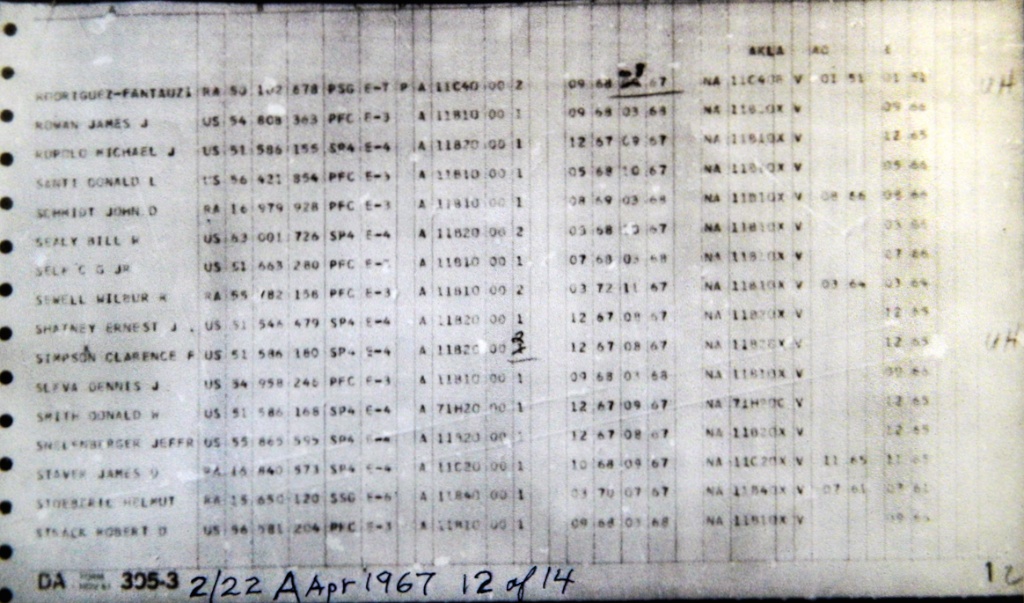 AKLA AO E
RODRIGUEZ-FANTAUZI RA 50 102 678 PSG E-7 P A 11C40 00 2 09 68 67 NA 11C40B V 01 51 01 51 UH
ROMAN JAMES J US 54 808 363 PFC E-3 A 11B10 00 1 09 68 03 68 NA 11B10X V 09 66
ROPOLO MICHAEL J US 51 586 155 SP4 E-4 A 11B20 00 1 12 67 09 67 NA 11B10X V 12 65
SANTI DONALD L US 56 421 854 PFC E-3 A 11B10 00 1 05 68 10 67 NA 11B10X V 05 66
SCHMIDT JOHN D RA 16 979 928 PFC E-3 A 11B10 00 1 08 69 03 68 NA 11B10X V 08 66 08 66
SEALY BILL W US 63 001 726 SP4 E-4 A 11B20 00 2 03 68 67 NA 11B10X V 03 66
SELF C G JR US 51 663 280 PFC A 11B10 00 1 07 68 03 68 NA 11B10X V 07 66
SEWELL WILBUR R RA 55 782 156 PFC E-3 A 11B10 00 2 03 72 11 67 NA 11B10X V 03 64 03 64
SHATNEY ERNEST J US 51 546 479 SP4 E-4 A 11B20 00 1 12 67 08 67 NA 11B20X V 12 65
SIMPSON CLARENCE F US 51 586 180 SP4 E-4 A 11B20 00 12 67 08 67 NA 11B20X V 12 65 UH
SLEVA DENNIS J US 54 958 246 PFC E-3 A 11B10 00 1 09 68 03 68 NA 11B10X V 09 66
SMITH DONALD W US 51 586 168 SP4 E-4 A 71H20 00 1 12 67 09 67 NA 71H20C V 12 65
SNELENBERGER JEFFR US 55 865 595 SP4 E-4 A 11B20 00 1 12 67 08 67 NA 11B20X V 12 65
STAVER JAMES O RA 16 840 573 SP4 E-4 A 11C20 00 1 10 68 09 67 NA 11C20X V 11 65 11 65
STOEBERIE HELMUT RA 15 650 120 SSG E-6 A 11B40 00 1 03 70 07 67 NA 11B40X V 07 61 07 61
STRACK ROBERT D US 56 581 204 PFC E-3 A 11B10 00 1 09 68 03 68 NA 11B10X V 09 66
DA FORM 305-3 2/22 A Apr 1967 12 of 14 12